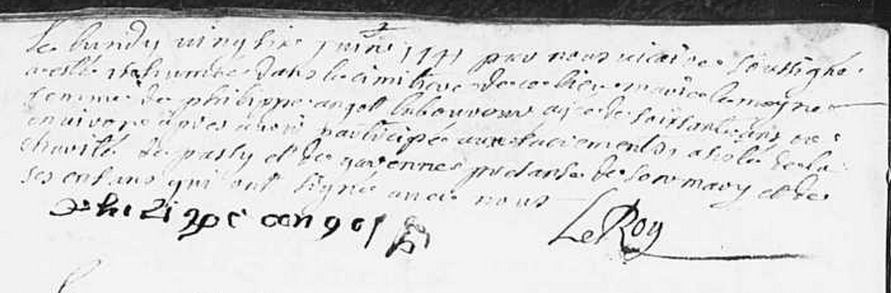 Le lundy vingt six juin 1741 par nous vicaire soussigné
a esté inhumée dans le cimitiere de ce lieu marie le moyne
femme de philippe angot laboureur agée de soixante ans ou
environ apres avoir participée aux sacrements a
charité de passy et de garennes presence de son mary et de
ses enfans qui ont signé avec nous
philippe angot LeRoy